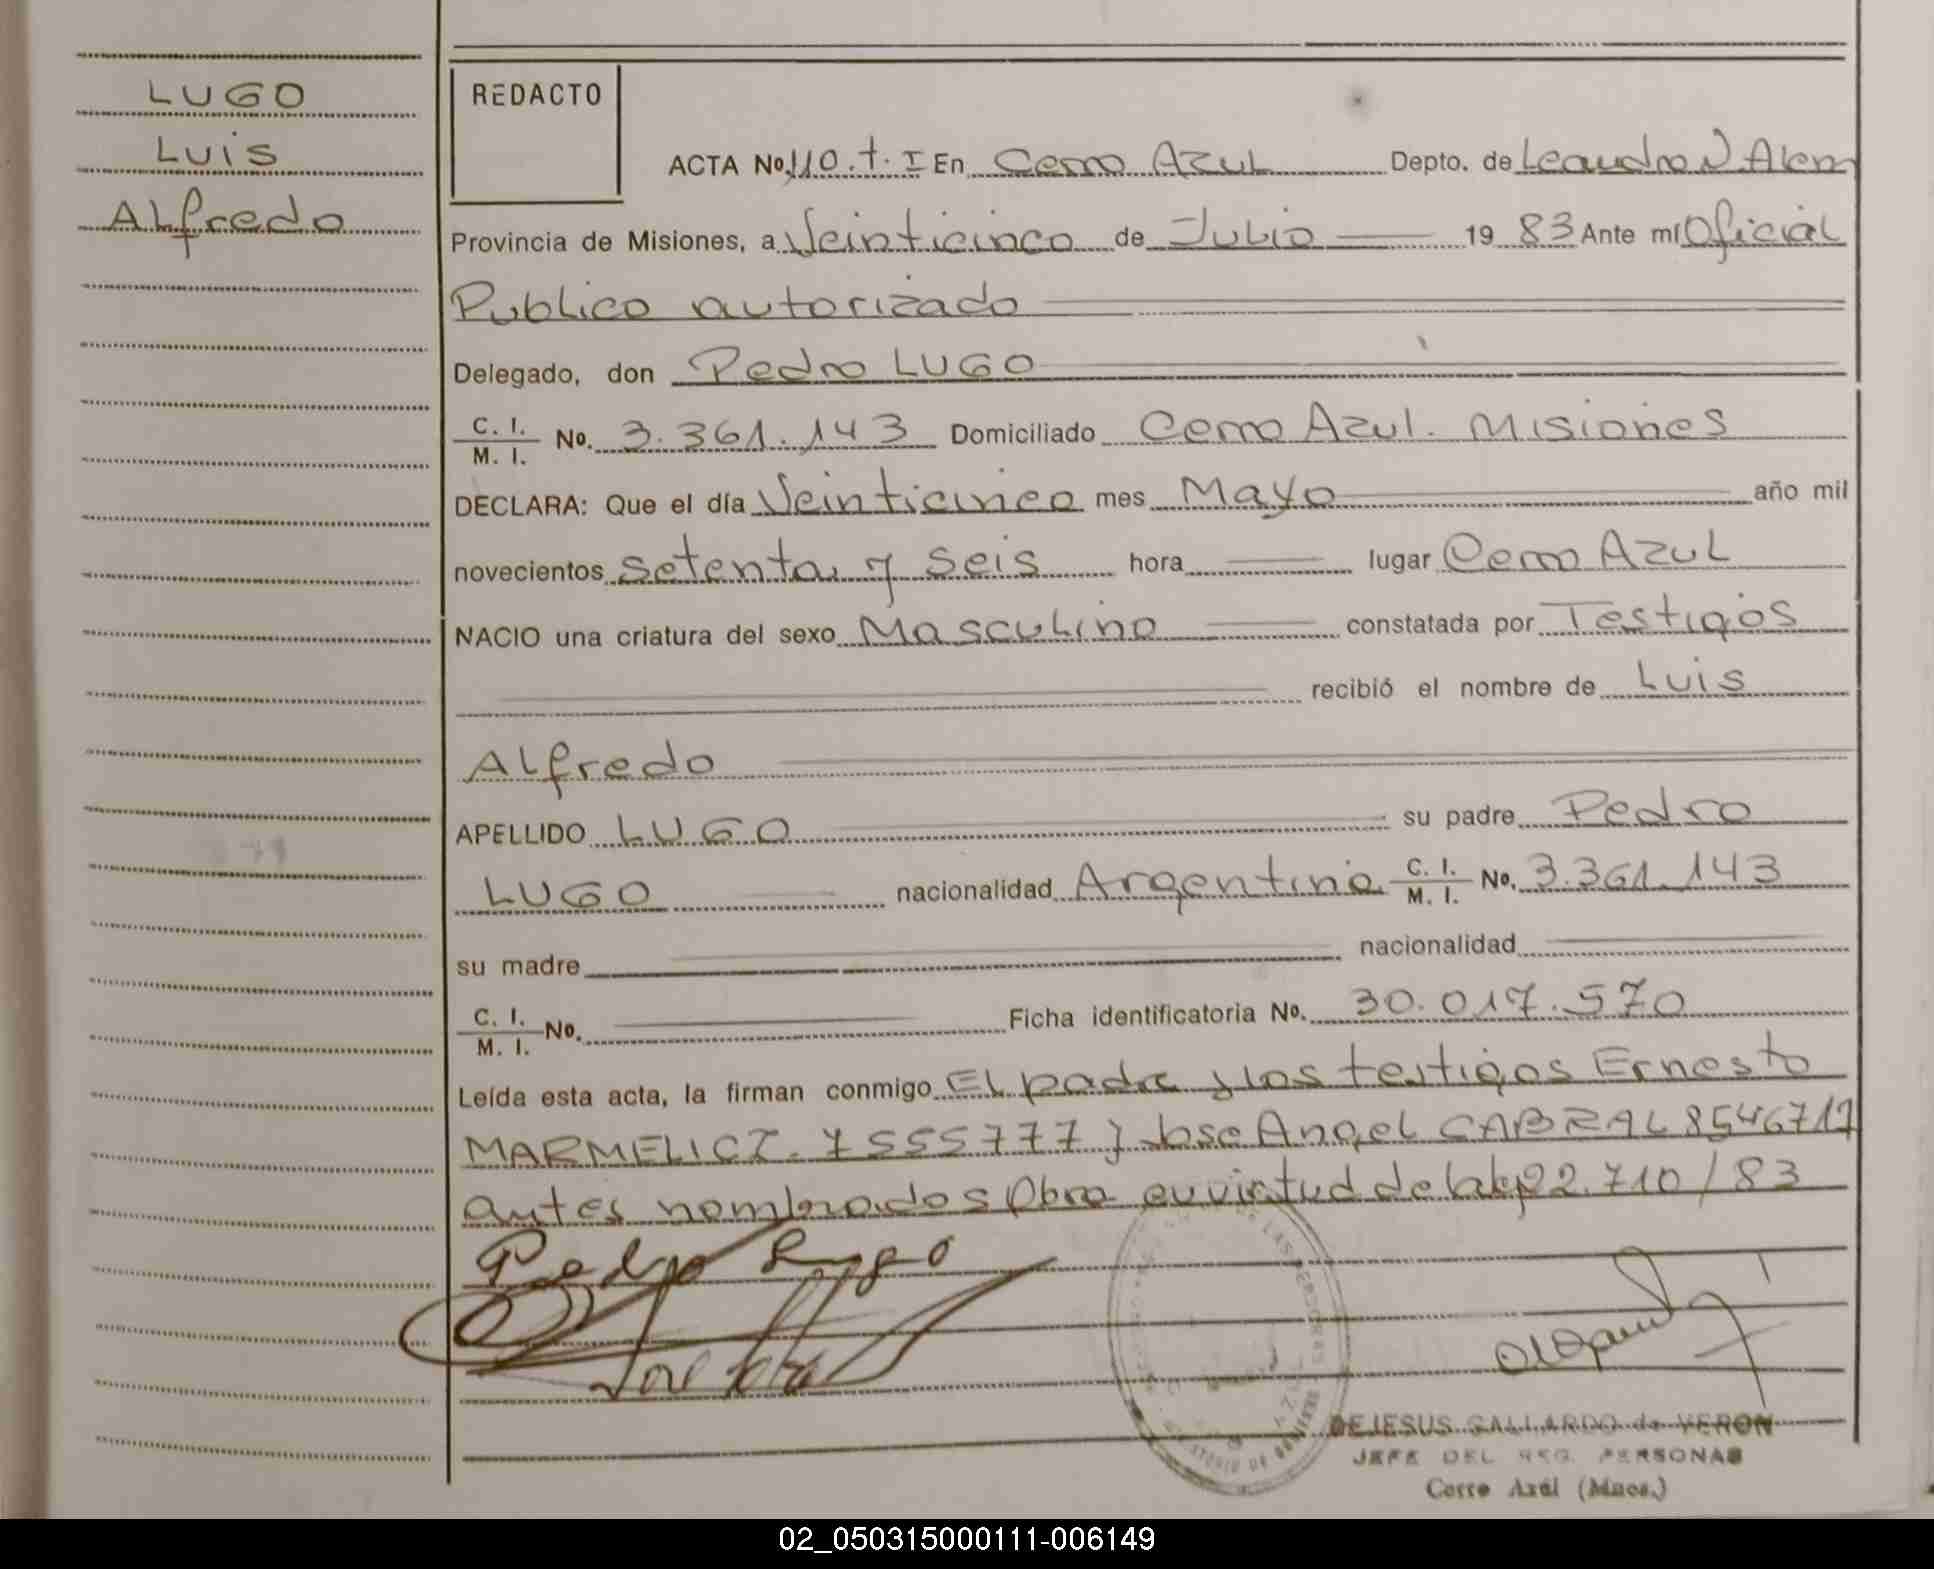 LUGO
Luis
Alfredo
REDACTO
ACTA No. 110. t. I En Cerro Azul Depto. de Leandro N Alem
Provincia de Misiones, a Veinticinco de Julio 19 83 Ante mi Oficial
Publico autorizado
Delegado, don Pedro LUGO
C. I. / M. I. No. 3.361.143 Domiciliado Cerro Azul. Misiones
DECLARA: Que el día Veinticinco mes Mayo año mil
novecientos setenta y seis hora lugar Cerro Azul
NACIO una criatura del sexo Masculino constatada por Testigos
recibió el nombre de Luis
Alfredo
APELLIDO LUGO su padre Pedro
LUGO nacionalidad Argentina C. I. / M. I. No. 3.361.143
su madre nacionalidad
C. I. / M. I. No. Ficha identificatoria No. 30.017.570
Leída esta acta, la firman conmigo El padre y los testigos Ernesto
MARMELICZ. 7555777 y Jose Angel CABRAL 8546717
antes nombrados Obra en virtud de la ley 22.710/83
Pedro Lugo
DEJESUS GALLARDO de VERON
JEFE DEL REG. PERSONAS
Cerro Azúl (Mnes.)
02_050315000111-006149